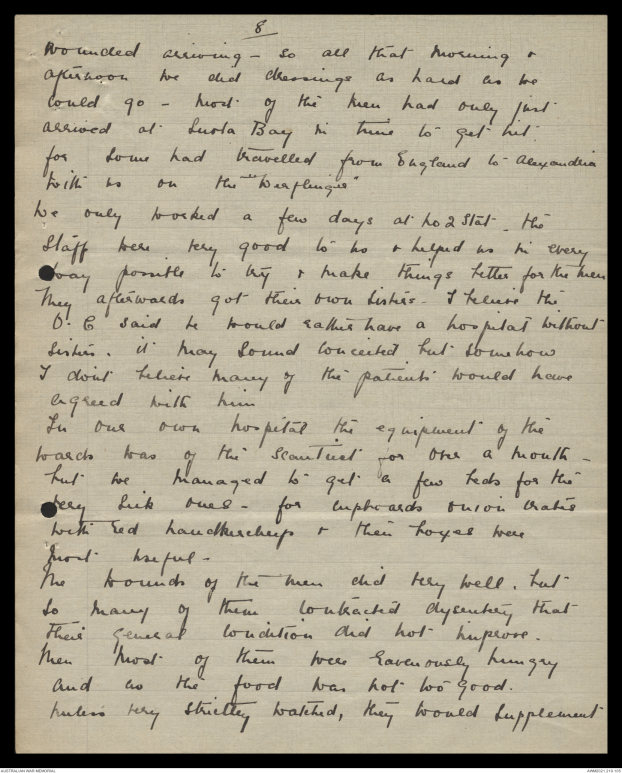 8
wounded arriving - so all that morning &
afternoon we did dressings as hard as we
could go - most of the men had only just
arrived at Suvla Bay in time to get hit.
for some had travelled from England to Alexandria
with us on the "Derflinger"
We only worked a few days at No 2 Stat - the
Staff were very good to us & helped us in every
way possible to try & make things better for the men
They afterwards got their own Sisters - I believe the
O. C said he would rather have a hospital without
Sisters. it may sound conceited but somehow
I don't believe many of the patients would have
agreed with him
In our own hospital the equipment of the
wards was of the scantiest for over a month -
but we managed to get a few beds for the
very sick ones - for cupboards onion crates
with red handkercheifs & their boxes were
most useful -
The wounds of the men did very well. but
so many of them contracted dysentery that
their general condition did not improve.
Then most of them were ravenously hungry
and as the food was not too good.
unless very strictly watched, they would supplement
AUSTRALIAN WAR MEMORIAL